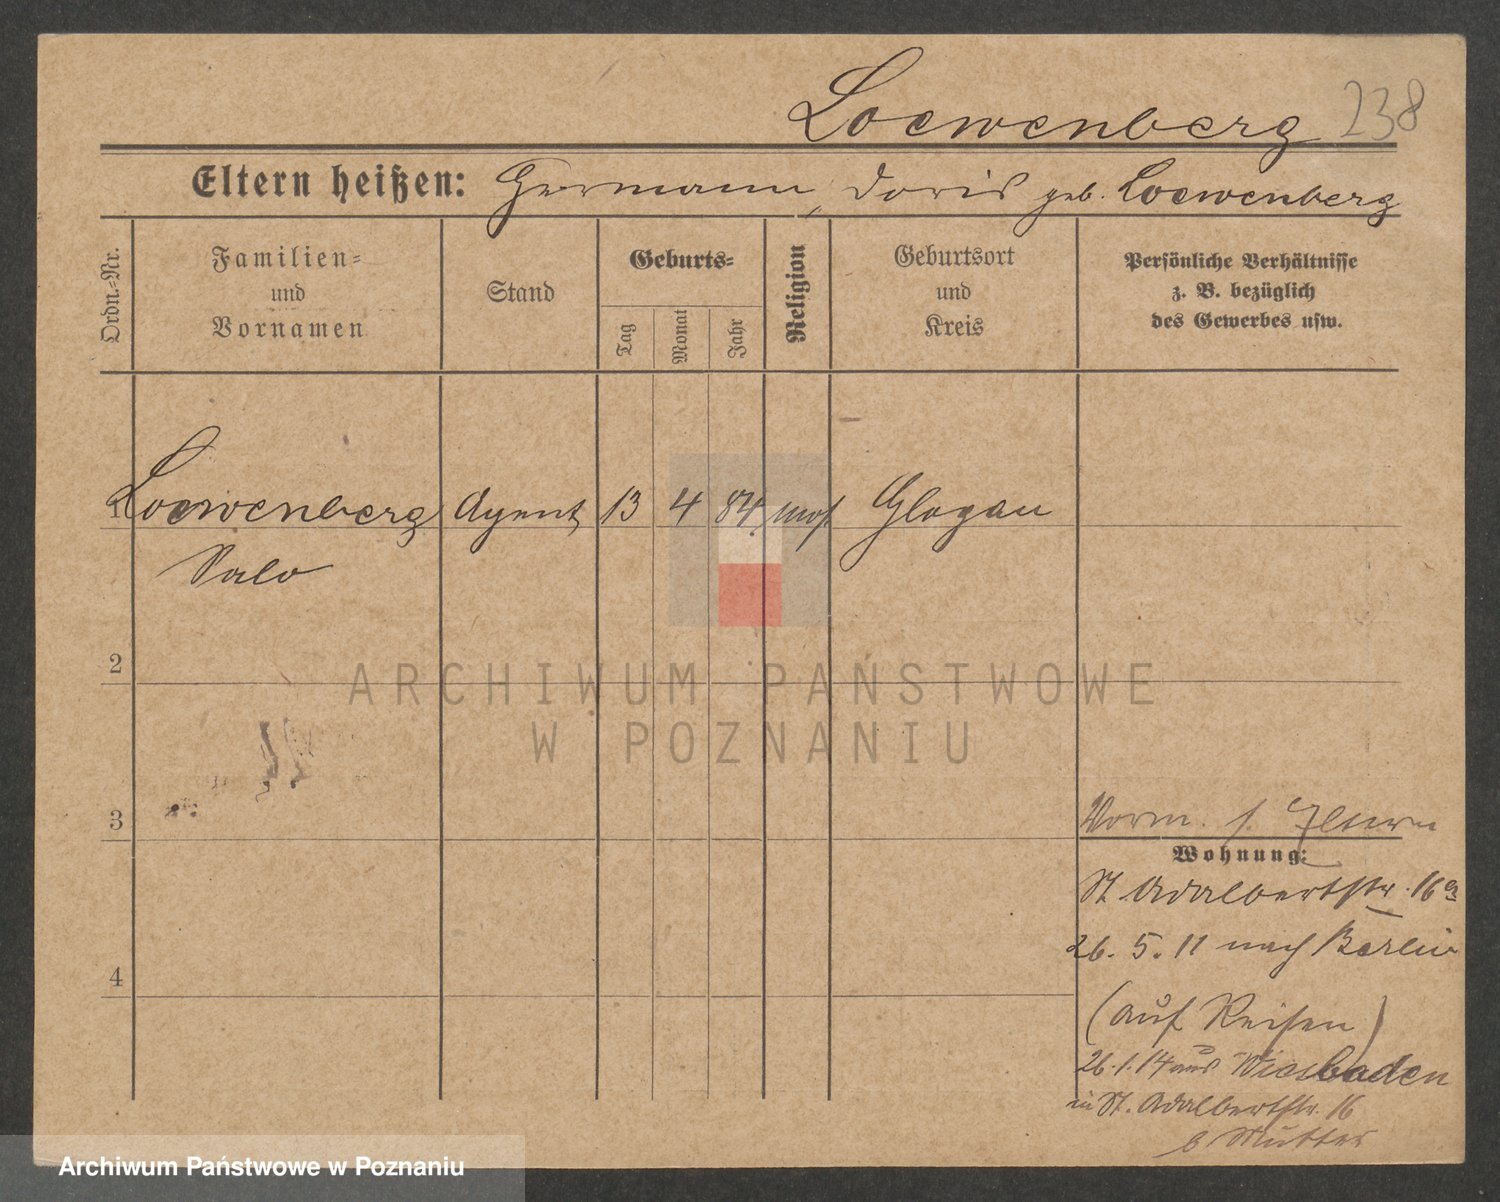 Loewenberg 238
Eltern heißen: Hermann, Doris geb. Loewenberg
Ordn.-Nr.
Familien-
und
Vornamen
Stand
Geburts-
Tag
Monat
Jahr
Religion
Geburtsort
und
Kreis
Persönliche Verhältnisse
z. B. bezüglich
des Gewerbes usw.
1 Loewenberg Agent 13 4 84 mos Glogau
Salo
2
ARCHIWUM PAŃSTWOWE
W POZNANIU
3
Vorm. s. Eltern
Wohnung:
St. Adalbertstr. 16
26. 5. 11 nach Berlin
4
(auf Reisen)
26. 1. 14 aus Wiesbaden
in St. Adalbertstr. 16
b Mutter
Archiwum Państwowe w Poznaniu